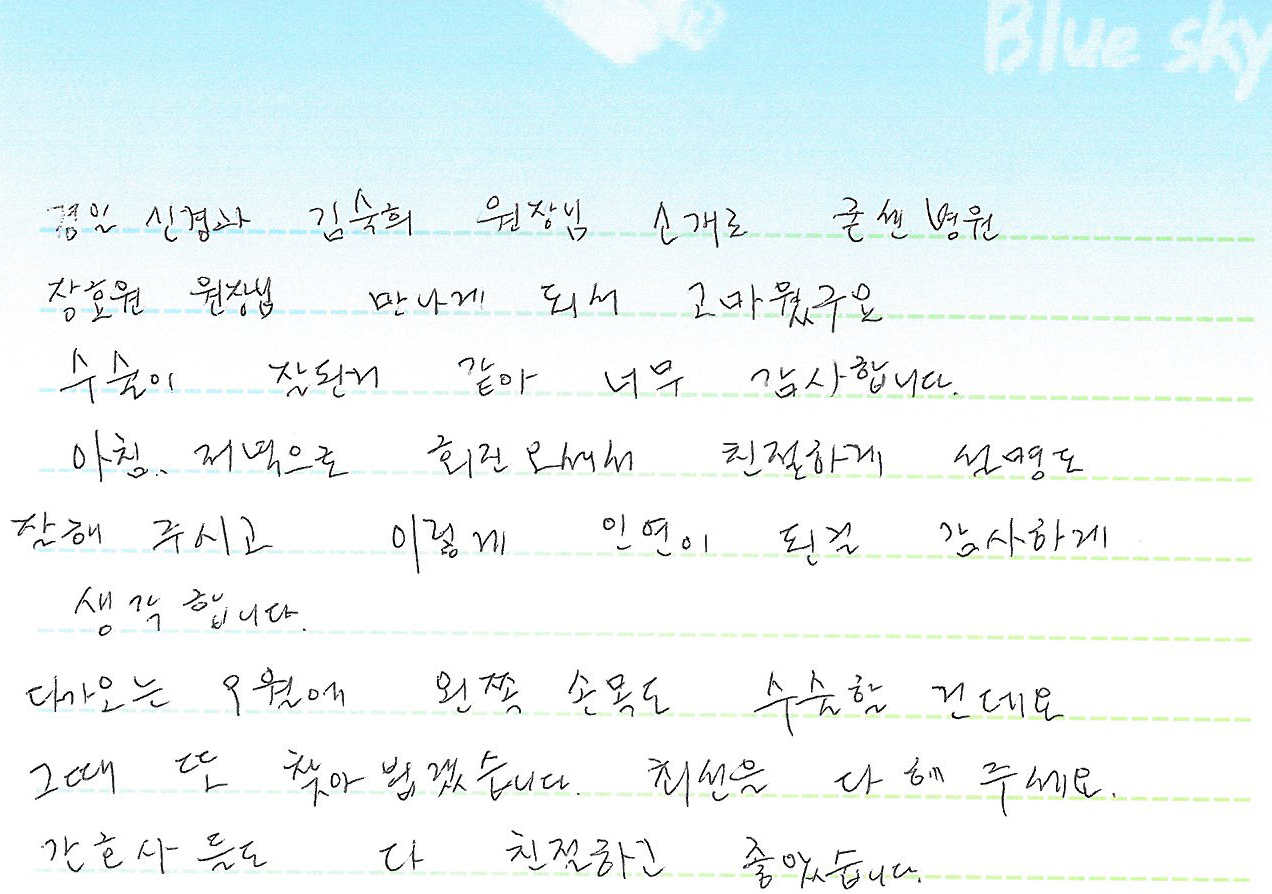 Blue sky
경일 신경과 김숙희 원장님 소개로 굳센병원
장효원 원장님 만나게 되서 고마웠구요
수술이 잘된거 같아 너무 감사합니다.
아침.. 저녁으로 회진오셔서 친절하게 설명도
잘해 주시고 이렇게 인연이 된걸 감사하게
생각합니다.
다가오는 9월에 왼쪽 손목도 수술할 건데요
그때 또 찾아 뵙겠습니다. 최선을 다 해 주세요.
간호사들도 다 친절하고 좋았습니다.